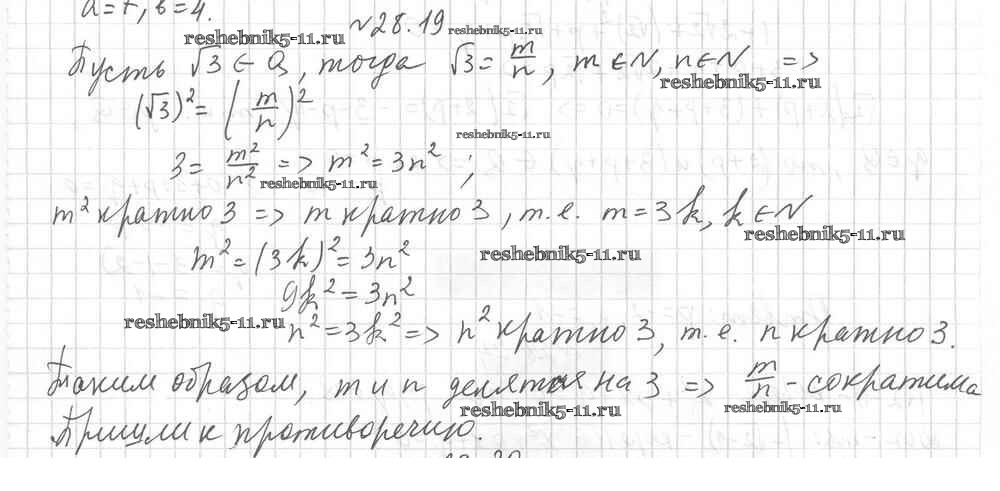 a=7, b=4.
№28.19
reshebnik5-11.ru reshebnik5-11.ru
Пусть √3 ∈ Q, тогда √3 = m/n, m∈N, n∈N =>
reshebnik5-11.ru
(√3)² = (m/n)²
reshebnik5-11.ru
3 = m²/n² => m² = 3n² ;
reshebnik5-11.ru
m² кратно 3 => m кратно 3, т.е. m=3k, k∈N
reshebnik5-11.ru
m² = (3k)² = 3n²
reshebnik5-11.ru
9k² = 3n²
reshebnik5-11.ru
n² = 3k² => n² кратно 3, т.е. n кратно 3.
Таким образом, m и n делятся на 3 => m/n - сократима
reshebnik5-11.ru reshebnik5-11.ru
Пришли к противоречию.